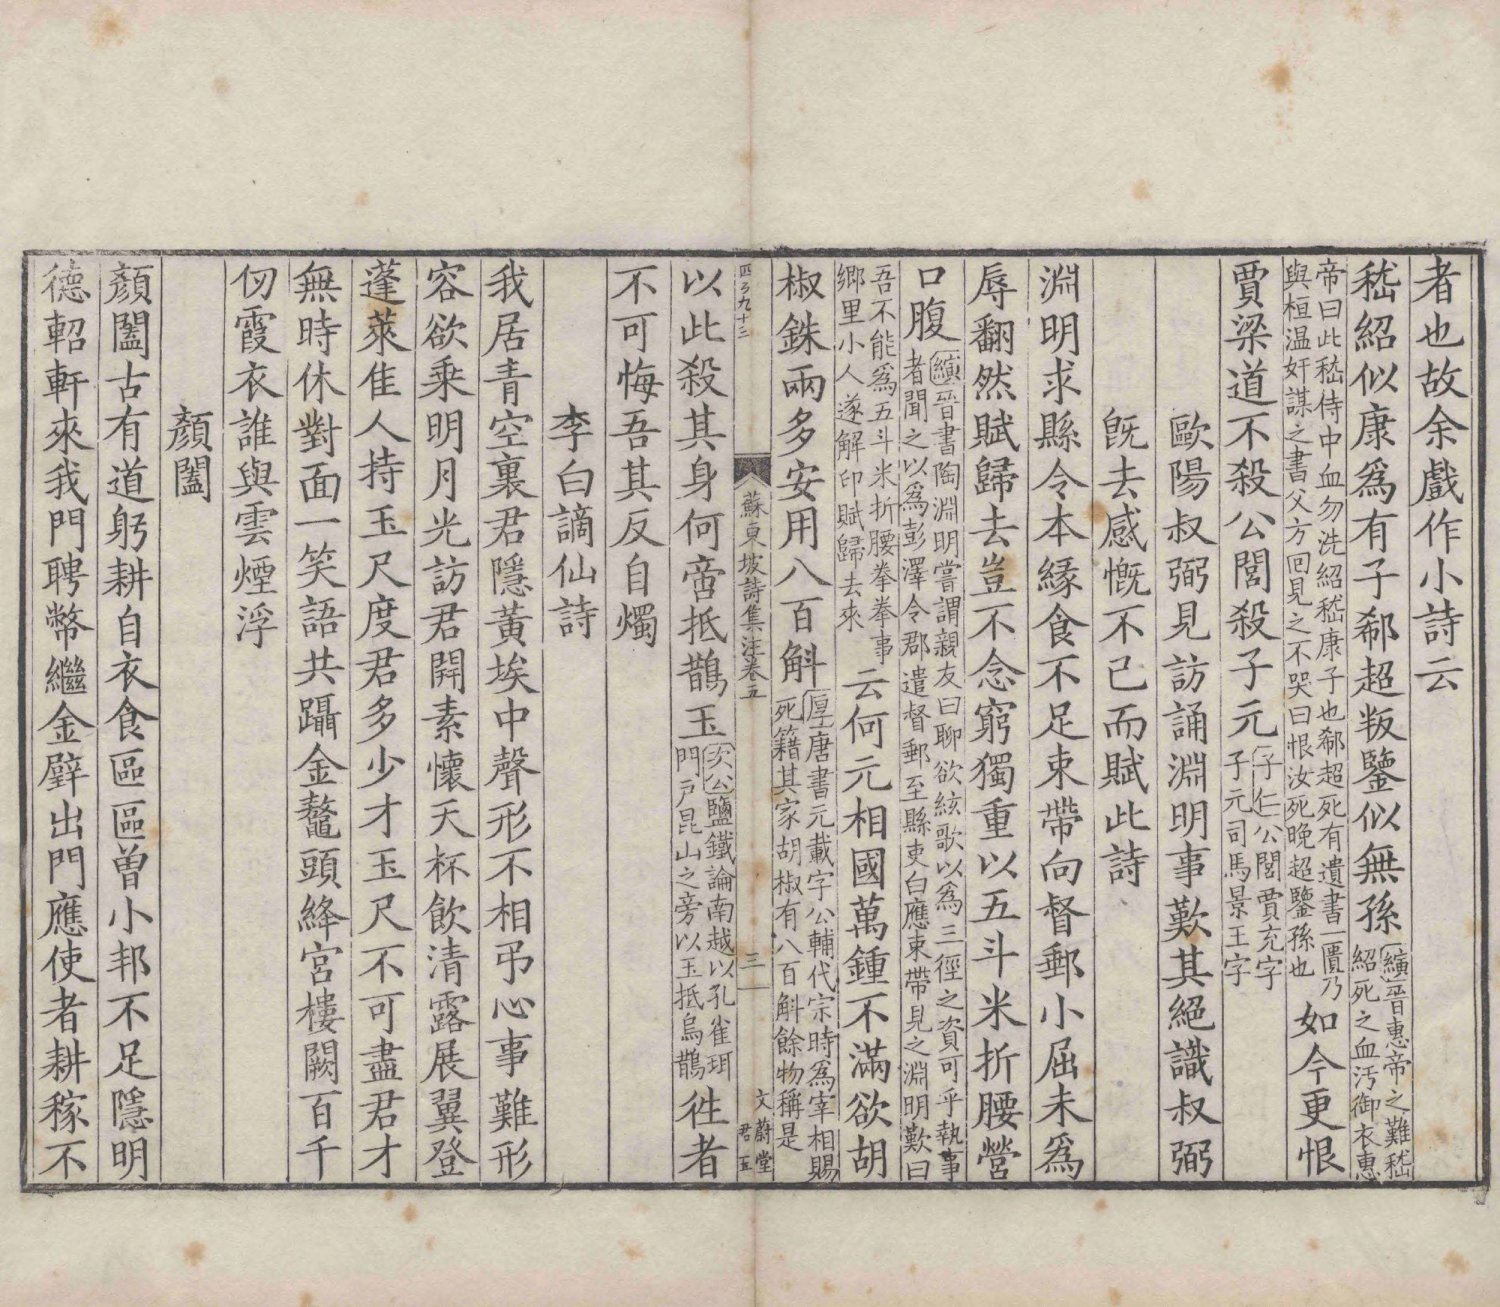 者也故余戲作小詩云
嵇紹似康爲有子郗超叛鑒似無孫縯晉惠帝之難嵇紹死之血汚御衣惠
帝曰此嵇侍中血勿洗紹嵇康子也郗超死有遺書一匱乃與桓温奸謀之書父方回見之不哭曰恨汝死晚超鑒孫也如今更恨
賈梁道不殺公閭殺子元子仁公閭賈充字子元司馬景王字
歐陽叔弼見訪誦淵明事歎其絕識叔弼
旣去感慨不已而賦此詩
淵明求縣令本緣食不足束帶向督郵小屈未爲
辱翻然賦歸去豈不念窮獨重以五斗米折腰營
口腹縯晉書陶淵明嘗謂親友曰聊欲絃歌以爲三徑之資可乎執事者聞之以爲彭澤令郡遣督郵至縣吏白應束帶見之淵明歎曰
吾不能爲五斗米折腰拳拳事鄉里小人遂解印賦歸去來云何元相國萬鍾不滿欲胡
椒銖兩多安用八百斛厚唐書元載字公輔代宗時爲宰相賜死籍其家胡椒有八百斛餘物稱是
蘇東坡詩集注卷五 三 文蔚堂
以此殺其身何啻抵鵲玉次公鹽鐵論南越以孔雀珥門戸昆山之旁以玉抵烏鵲徃者
不可悔吾其反自燭
李白謫仙詩
我居青空裏君隱黃埃中聲形不相弔心事難形
容欲乘明月光訪君開素懷天杯飲清露展翼登
蓬萊佳人持玉尺度君多少才玉尺不可盡君才
無時休對面一笑語共躡金鼇頭絳宮樓闕百千
仞霞衣誰與雲煙浮
顏闔
顏闔古有道躬耕自衣食區區曽小邦不足隱明
德軺軒來我門聘幣繼金璧出門應使者耕稼不